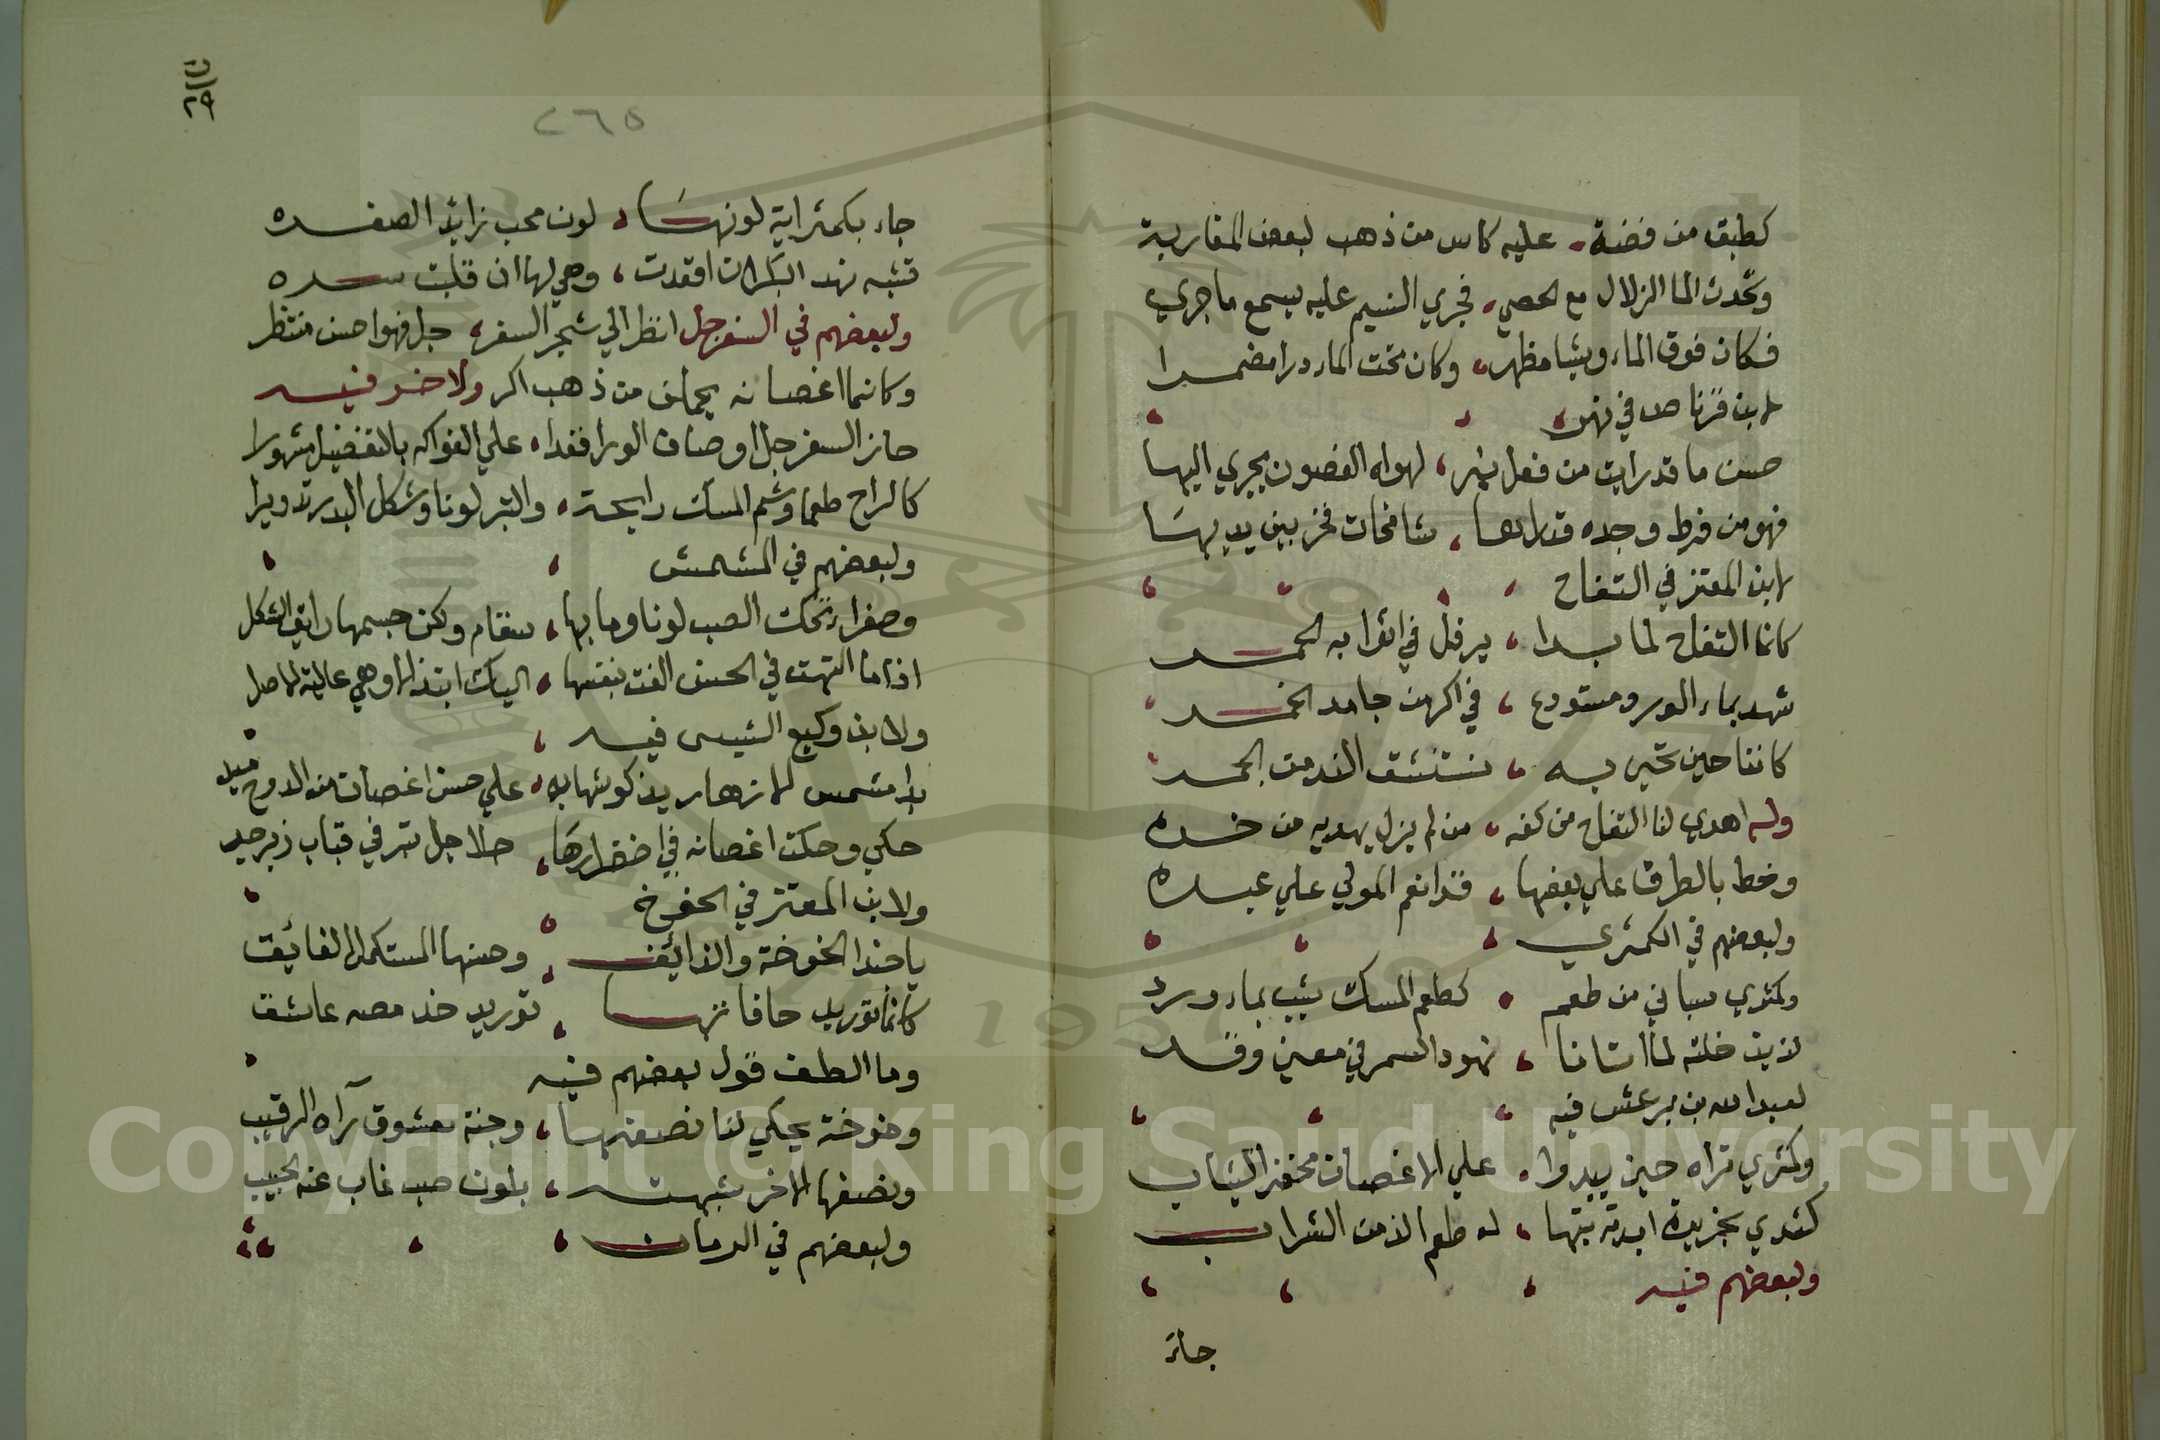 كطبق من فضة عليه كاس من ذهب لبعض المغاربة
وتحدث الما الزلال مع الحصي فجري النسيم عليه يسمع ما جري
فكان فوق الماء وشيا مظهر وكان تحت الماء درا مضمرا
لابن قرناص في نهر
حسن ما قد رايت من فعل نهر لهواه الغصون يجري اليها
فهو من فرط وجده قد اراها شامخات فخر بين يديها
لابن المعتز في التفاح
كانما التفاح لما بدا يرفل في اثوابه الحمر
شهد بماء الورد مستودع في اكر من جامد الخمر
كاننا حين نحيي به نستنشق الند من الجمر
وله اهدي لنا التفاح من كفه من لم يزل يهديه من خده
وخط بالطرف علي بعضها قد انعم المولي علي عبده
ولبعضهم في الكمثري
وكمثري سباني من طعم كطعم المسك شيب بماء ورد
لذيذ خلته لما اتانا نهود السمر في معين وقد
لعبد الله بن برغش فيه
وكمثري تراه حين يبدوا علي الاغصان مخضر الثياب
كثدي خريدة ابدته تيها له طعم الذ من الشراب
ولبعضهم فيه
جاء
ن
٢٩
٢٦٥
جاء بكمثراية لونها لون محب زايد الصفره
تشبه نهد البكر ان اقعدت وهي لها ان قلبت سره
ولبعضهم في السفرجل انظر الي شجر السفر جل فهو احسن منتظر
وكانما اغصانه يحملن من ذهب اكر ولاخر فيه
حاز السفرجل اوصاف الورا فغدا علي الفواكه بالتفضيل مشهورا
كالراح طعما وشم المسك رايحة والتبر لونا وشكل البدر تدويرا
ولبعضهم في المشمش
وصفراء تحكت الصب لونا وما بها سقام ولكن جسمها رايق الشكل
اذا ما انتهت في الحسن القت بنفسها اليك ابتذالا وهي عالية الاصل
ولابن وكيع التنيسي فيه
بدا مشمس الازهار يذكو شهابه علي حسن اغصان من الدوح ميد
حكي وحكت اغصانه في اخضرارها جلاجل تبر في قباب زبرجد
ولابن المعتز في الخوخ
يا حبذا الخوخة والذائق وحسنها المستكمل الفائق
كانما توريد حافاتها توريد خد مصه عاشق
وما الطف قول بعضهم فيه
وخوخة يحكي لنا نصفها وجنة معشوق رآه الرقيب
ونصفها الاخر شبهته بلون صب غاب عنه الحبيب
ولبعضهم في الرمان
Copyright © King Saud University
1957